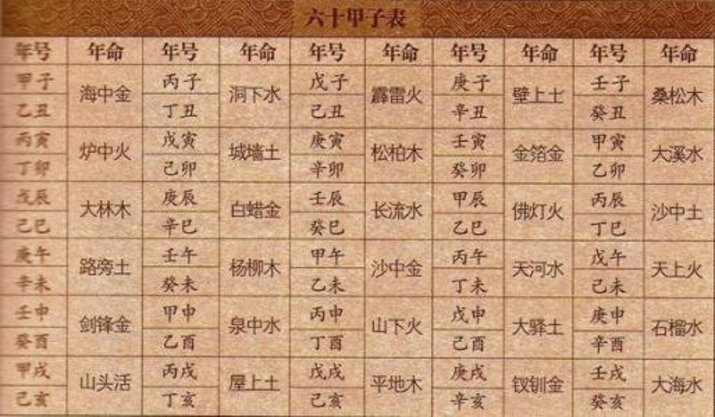 六十甲子表
年号 年命 年号 年命 年号 年命 年号 年命 年号 年命
甲子 海中金 丙子 洞下水 戊子 霹雷火 庚子 壁上土 壬子 桑松木
乙丑 丁丑 己丑 辛丑 癸丑
丙寅 炉中火 戊寅 城墙土 庚寅 松柏木 壬寅 金箔金 甲寅 大溪水
丁卯 己卯 辛卯 癸卯 乙卯
戊辰 大林木 庚辰 白蜡金 壬辰 长流水 甲辰 佛灯火 丙辰 沙中土
己巳 辛巳 癸巳 乙巳 丁巳
庚午 路旁土 壬午 杨柳木 甲午 沙中金 丙午 天河水 戊午 天上火
辛未 癸未 乙未 丁未 己未
壬申 剑锋金 甲申 泉中水 丙申 山下火 戊申 大驿土 庚申 石榴水
癸酉 乙酉 丁酉 己酉 辛酉
甲戌 山头活 丙戌 屋上土 戊戌 平地木 庚戌 钗钏金 壬戌 大海水
己亥 丁亥 己亥 辛亥 癸亥